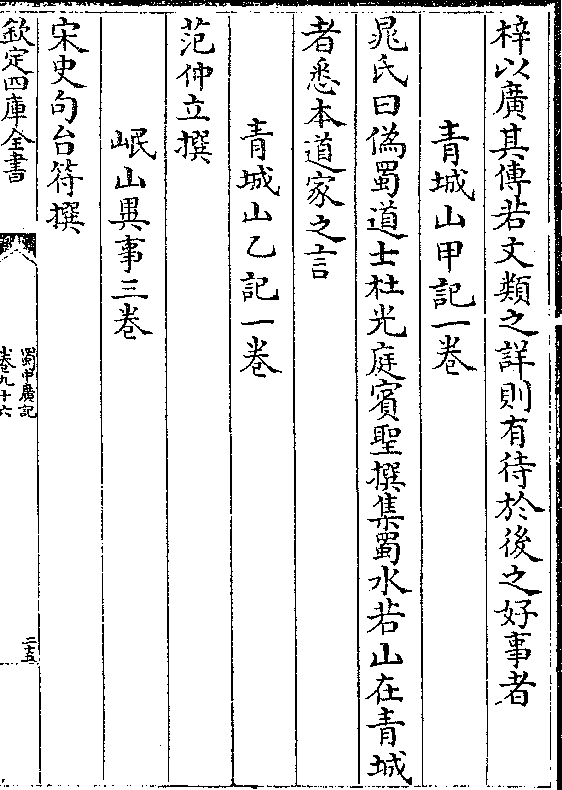 梓以廣其傳若文類之詳則有待於後之好事者
青城山甲記一卷
晁氏曰偽蜀道士杜光庭賓聖撰集蜀水若山在青城
者悉本道家之言
青城山乙記一卷
范仲立撰
岷山異事三卷
宋史句台符撰
欽定四庫全書
蜀中廣記
卷九十六
二五